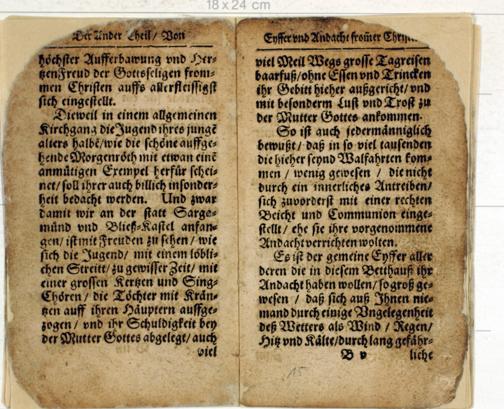 18 x 24 cm
Der Ander Theil / Von
höchster Aufferbawung vnd Her-
tzenFreud der Gottseligen from-
men Christen auffs allerfleissigst
sich eingestellt.
Dieweil in einem allgemeinen
Kirchgang die Jugend ihres jungē
alters halbē / wie die schöne auffge-
hende Morgenröth mit etwan einē
anmütigen Exempel herfür schei-
net / soll ihrer auch billich insonder-
heit bedacht werden. Und zwar
damit wir an der statt Sarge-
münd vnd Bließ-Kastel anfan-
gen / ist mit Freuden zu sehen / wie
sich die Jugend / mit einem löbli-
chen Streitt / zu gewisser Zeit / mit
einer grossen Kertzen und Sing-
Chören / die Töchter mit Krän-
tzen auff ihren Häuptern auffge-
zogen / vnd ihr Schuldigkeit bey
der Mutter Gottes abgelegt / auch
viel
Eyffer vnd Andacht from̄er
viel Meil Wegs grosse Tagreisen
baarfuß / ohne Essen vnd Trincken
ihr Gebitt hieher außgericht / vnd
mit besonderm Lust vnd Trost zu
der Mutter Gottes ankommen.
So ist auch jedermänniglich
bewußt / daß in so viel tausenden
die hieher seynd Walfahrten kom-
men / wenig gewesen / die nicht
durch ein innerliches Antreiben /
sich zuvorderst mit einer rechten
Beicht und Communion einge-
stellt / ehe sie ihre vorgenommene
Andacht verrichten wolten.
Es ist der gemeine Eyffer aller
deren die in diesem Betthauß ihr
Andacht haben wollen / so groß ge-
wesen / daß sich auß Ihnen nie-
mand durch einige Vngelegenheit
deß Wetters als Wind / Regen /
Hitz vnd Kälte / durch lang gefähr-
B v liche
15